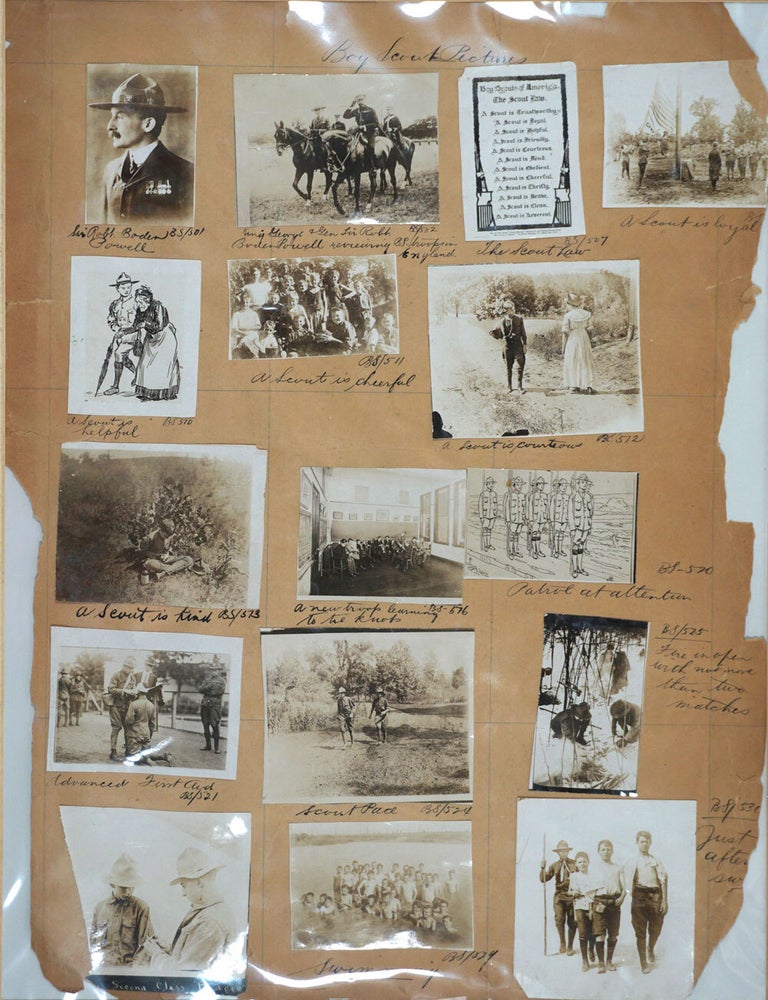 Boy Scout Pictures
Sir Robt. Boden BS/501
Powell
King George & Gen Sir Robt BS/502
Boden Powell reviewing BS troops in
England
Boy Scouts of America
The Scout Law.
A Scout is Trustworthy
A Scout is Loyal.
A Scout is Helpful.
A Scout is Friendly.
A Scout is Courteous.
A Scout is Kind.
A Scout is Obedient.
A Scout is Cheerful.
A Scout is Thrifty.
A Scout is Brave.
A Scout is Clean.
A Scout is Reverent.
BS/507
The Scout Law
BS
A Scout is loyal
A Scout is BS 510
helpful
BS/511
A Scout is cheerful
A Scout is courteous BS 512
A Scout is kind BS/513
A new troop learning BS-516
to tie knots
BS-520
Patrol at attention
Advanced First Aid
BS/521
Scout Pace BS/524
BS/525
Fire in open
with not more
than two
matches
Second Class
Swimming BS/529
BS/530
Just
after